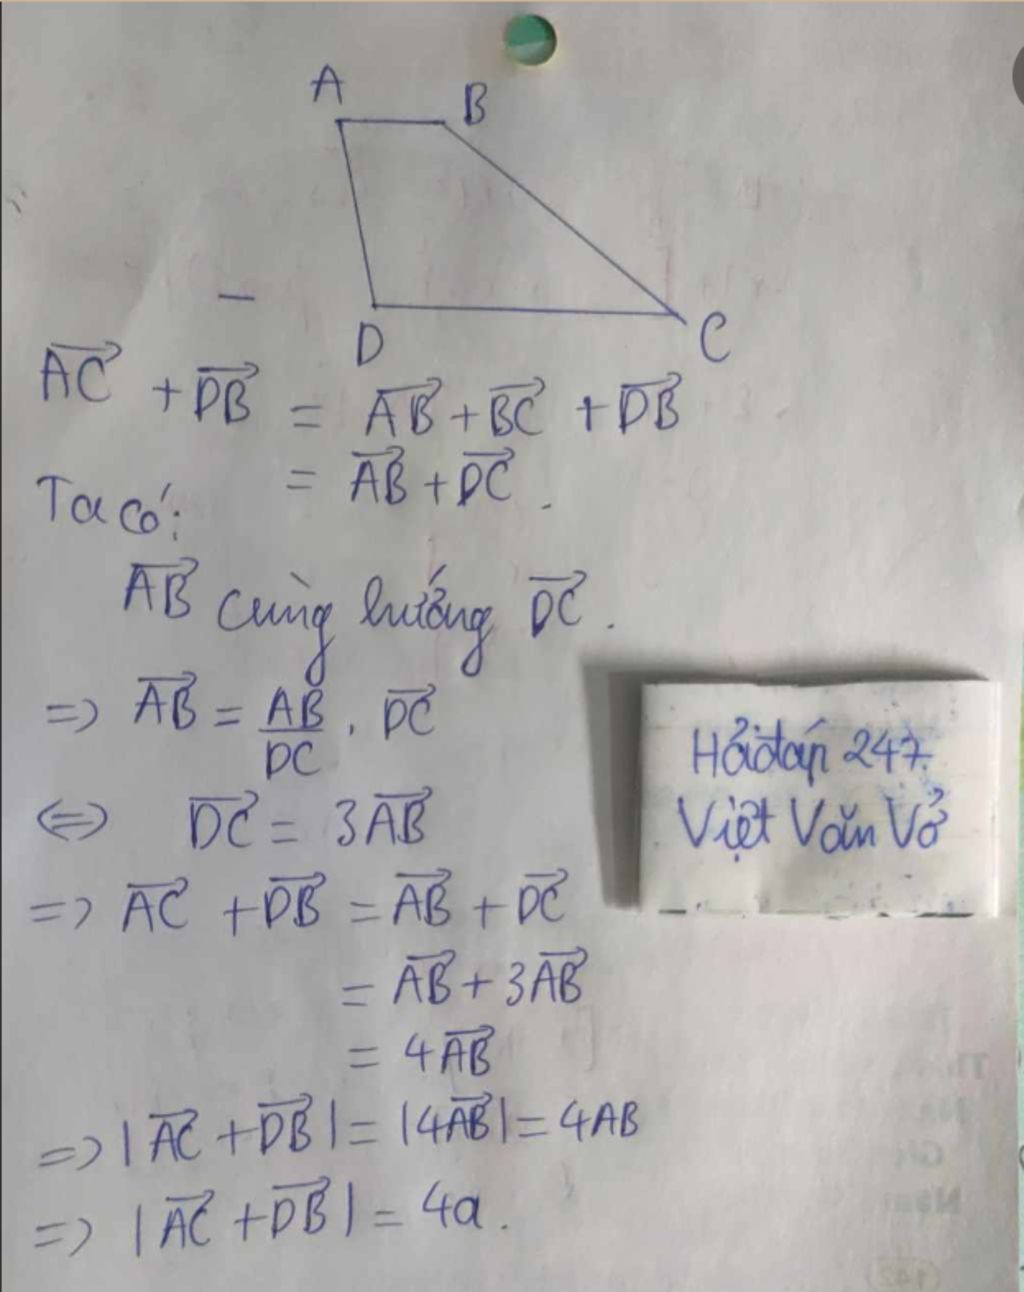 A
B
D
C
AC→ + DB→ = AB→ + BC→ + DB→
= AB→ + DC→.
Ta có:
AB→ cùng hướng DC→.
=> AB→ = AB/DC . DC→
<=> DC→ = 3AB→
=> AC→ + DB→ = AB→ + DC→
= AB→ + 3AB→
= 4AB→
=> |AC→ + DB→| = |4AB→| = 4AB
=> |AC→ + DB→| = 4a.
Hỏiđáp 247
Việt Văn Vở